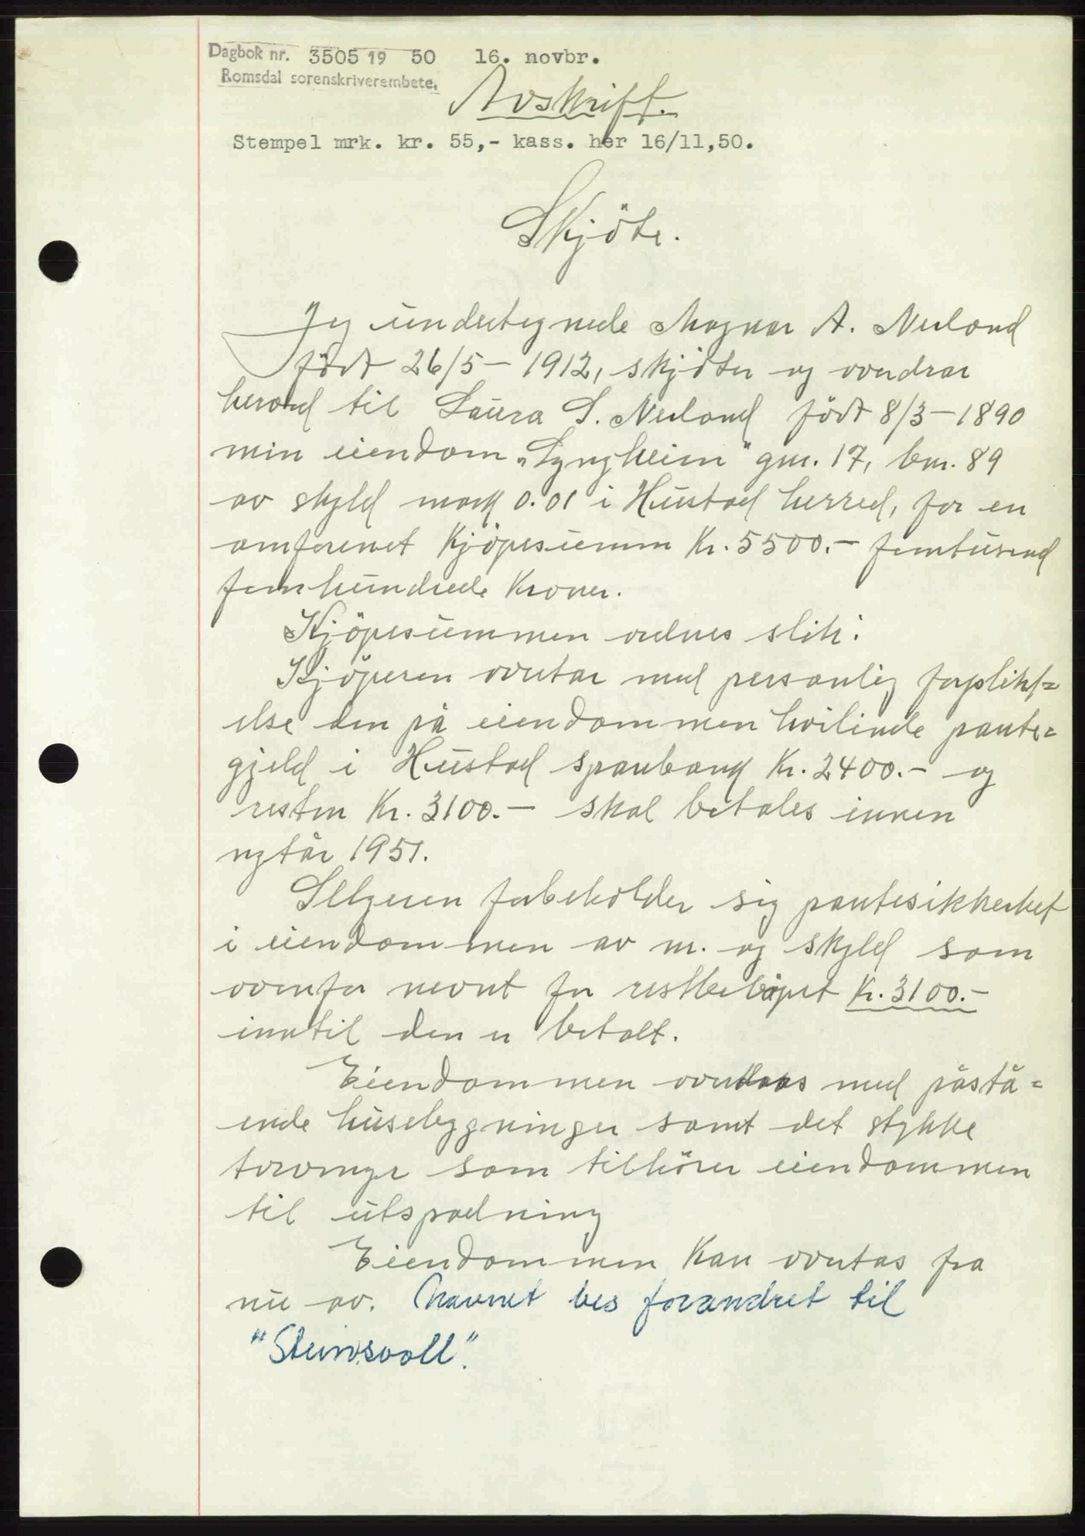 Dagbok nr. 3505 19 50 16. novbr.
Romsdal sorenskriverembete.
Avskrift.
Stempel mrk. kr. 55,- kass. her 16/11,50.
Skjöte.
Jeg undertegnede Magnar A. Neiland
födt 26/5 - 1912, skjöter og overdrar
herved til Laura S. Neiland födt 8/3 - 1890
min eiendom „Lyngheim" gnr. 17, bnr. 89
av skyld mark 0.01 i Hustad herred, for en
omforenet Kjöpesumm Kr. 5500.- femtusend
femhundrede Kroner.
Kjöpesummen ordnes slik:
Kjöperen overtar med personlig forplikt=
else den på eiendommen hvilende pante=
gjeld i Hustad sparebank Kr. 2400.- og
resten Kr. 3100.- skal betales innen
nytår 1951.
Selgeren forbeholder sig pantesikkerhet
i eiendommen av nr. og skyld som
ovenfor nevnt for restbelöpet Kr. 3100.-
inntil den er betalt.
Eiendommen overtas med påstå=
ende husebygninger samt det stykke
torvmyr som tilhörer eiendommen
til utspadning
Eiendommen Kan overtas fra
nu av. Navnet bes forandret til
"Steinsvoll".